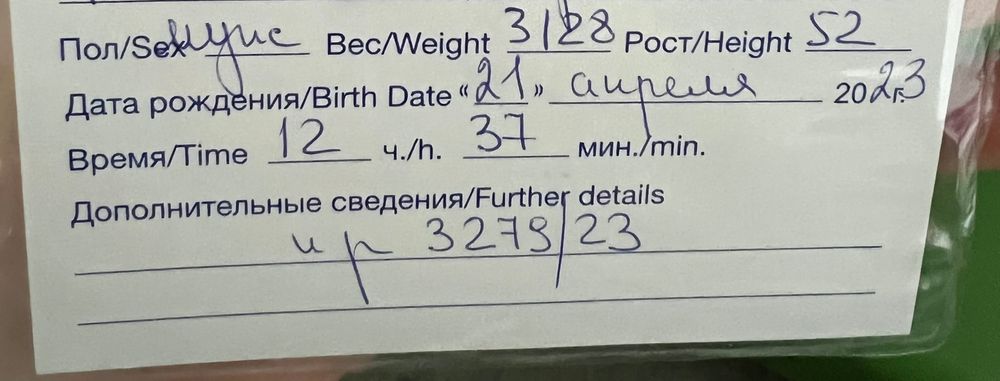 Пол/Sex муж Вес/Weight 3128 Рост/Height 52
Дата рождения/Birth Date «21» апреля 2023г.
Время/Time 12 ч./h. 37 мин./min.
Дополнительные сведения/Further details
и р 3279/23